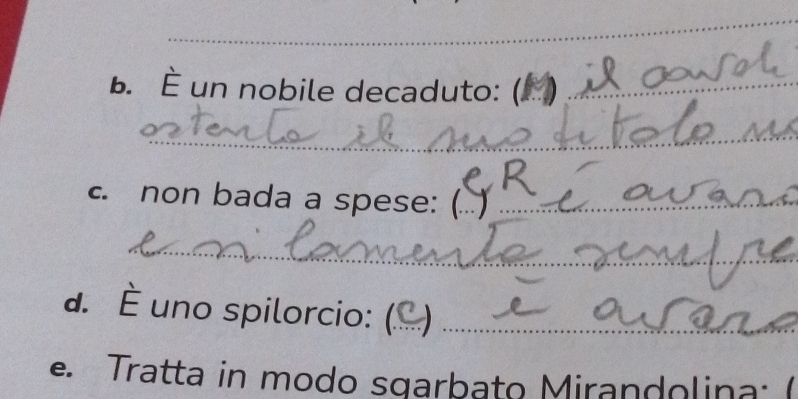 b. È un nobile decaduto: (M) il
ostenta il suo titolo
c. non bada a spese: (...) R è avaro
e si lamenta sempre
d. È uno spilorcio: (C) è avaro
e. Tratta in modo sgarbato Mirandolina: (